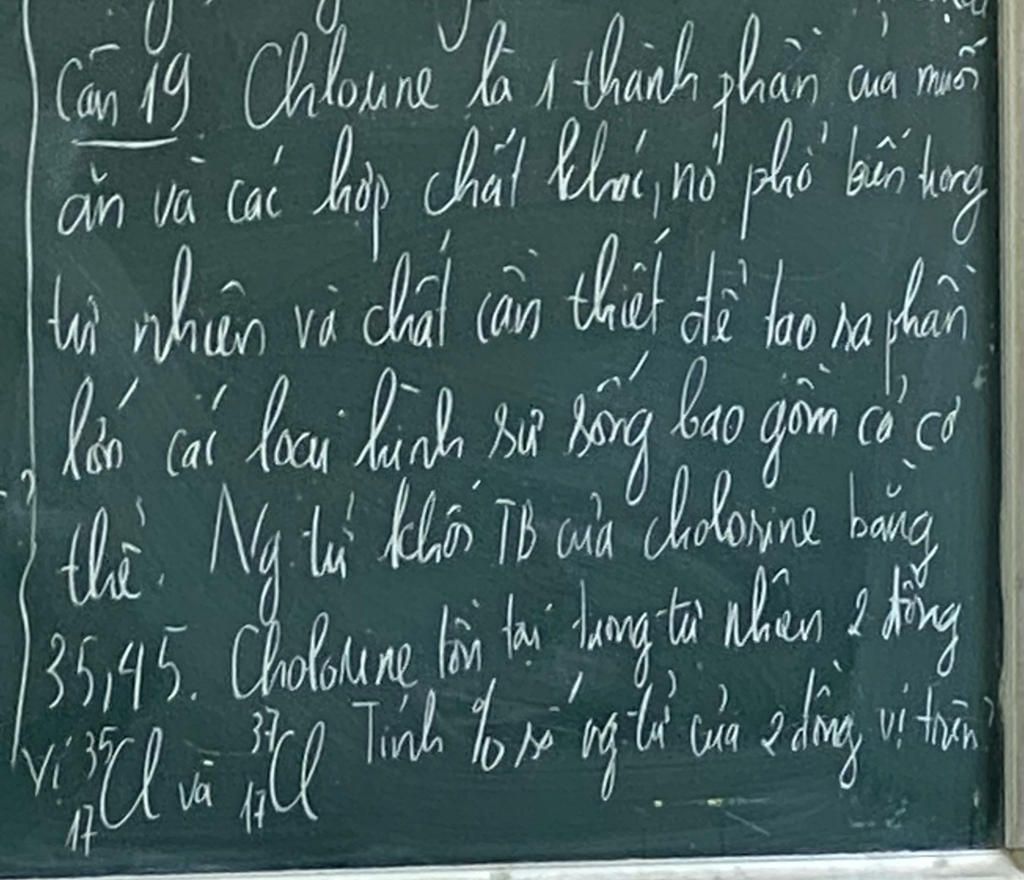 Câu 19 Chlorine là 1 thành phần của muối
ăn và các hợp chất khác, nó phổ biến trong
tự nhiên và chất cần thiết để tạo ra phần
lớn các loại hình sự sống bao gồm cả cơ
thể. Ng tử khối TB của cholorine bằng
35,45. Cholorine tồn tại trong tự nhiên 2 đồng
vị ³⁵₁₇Cl và ³⁷₁₇Cl Tính % số ng tử của 2 đồng vị trên?